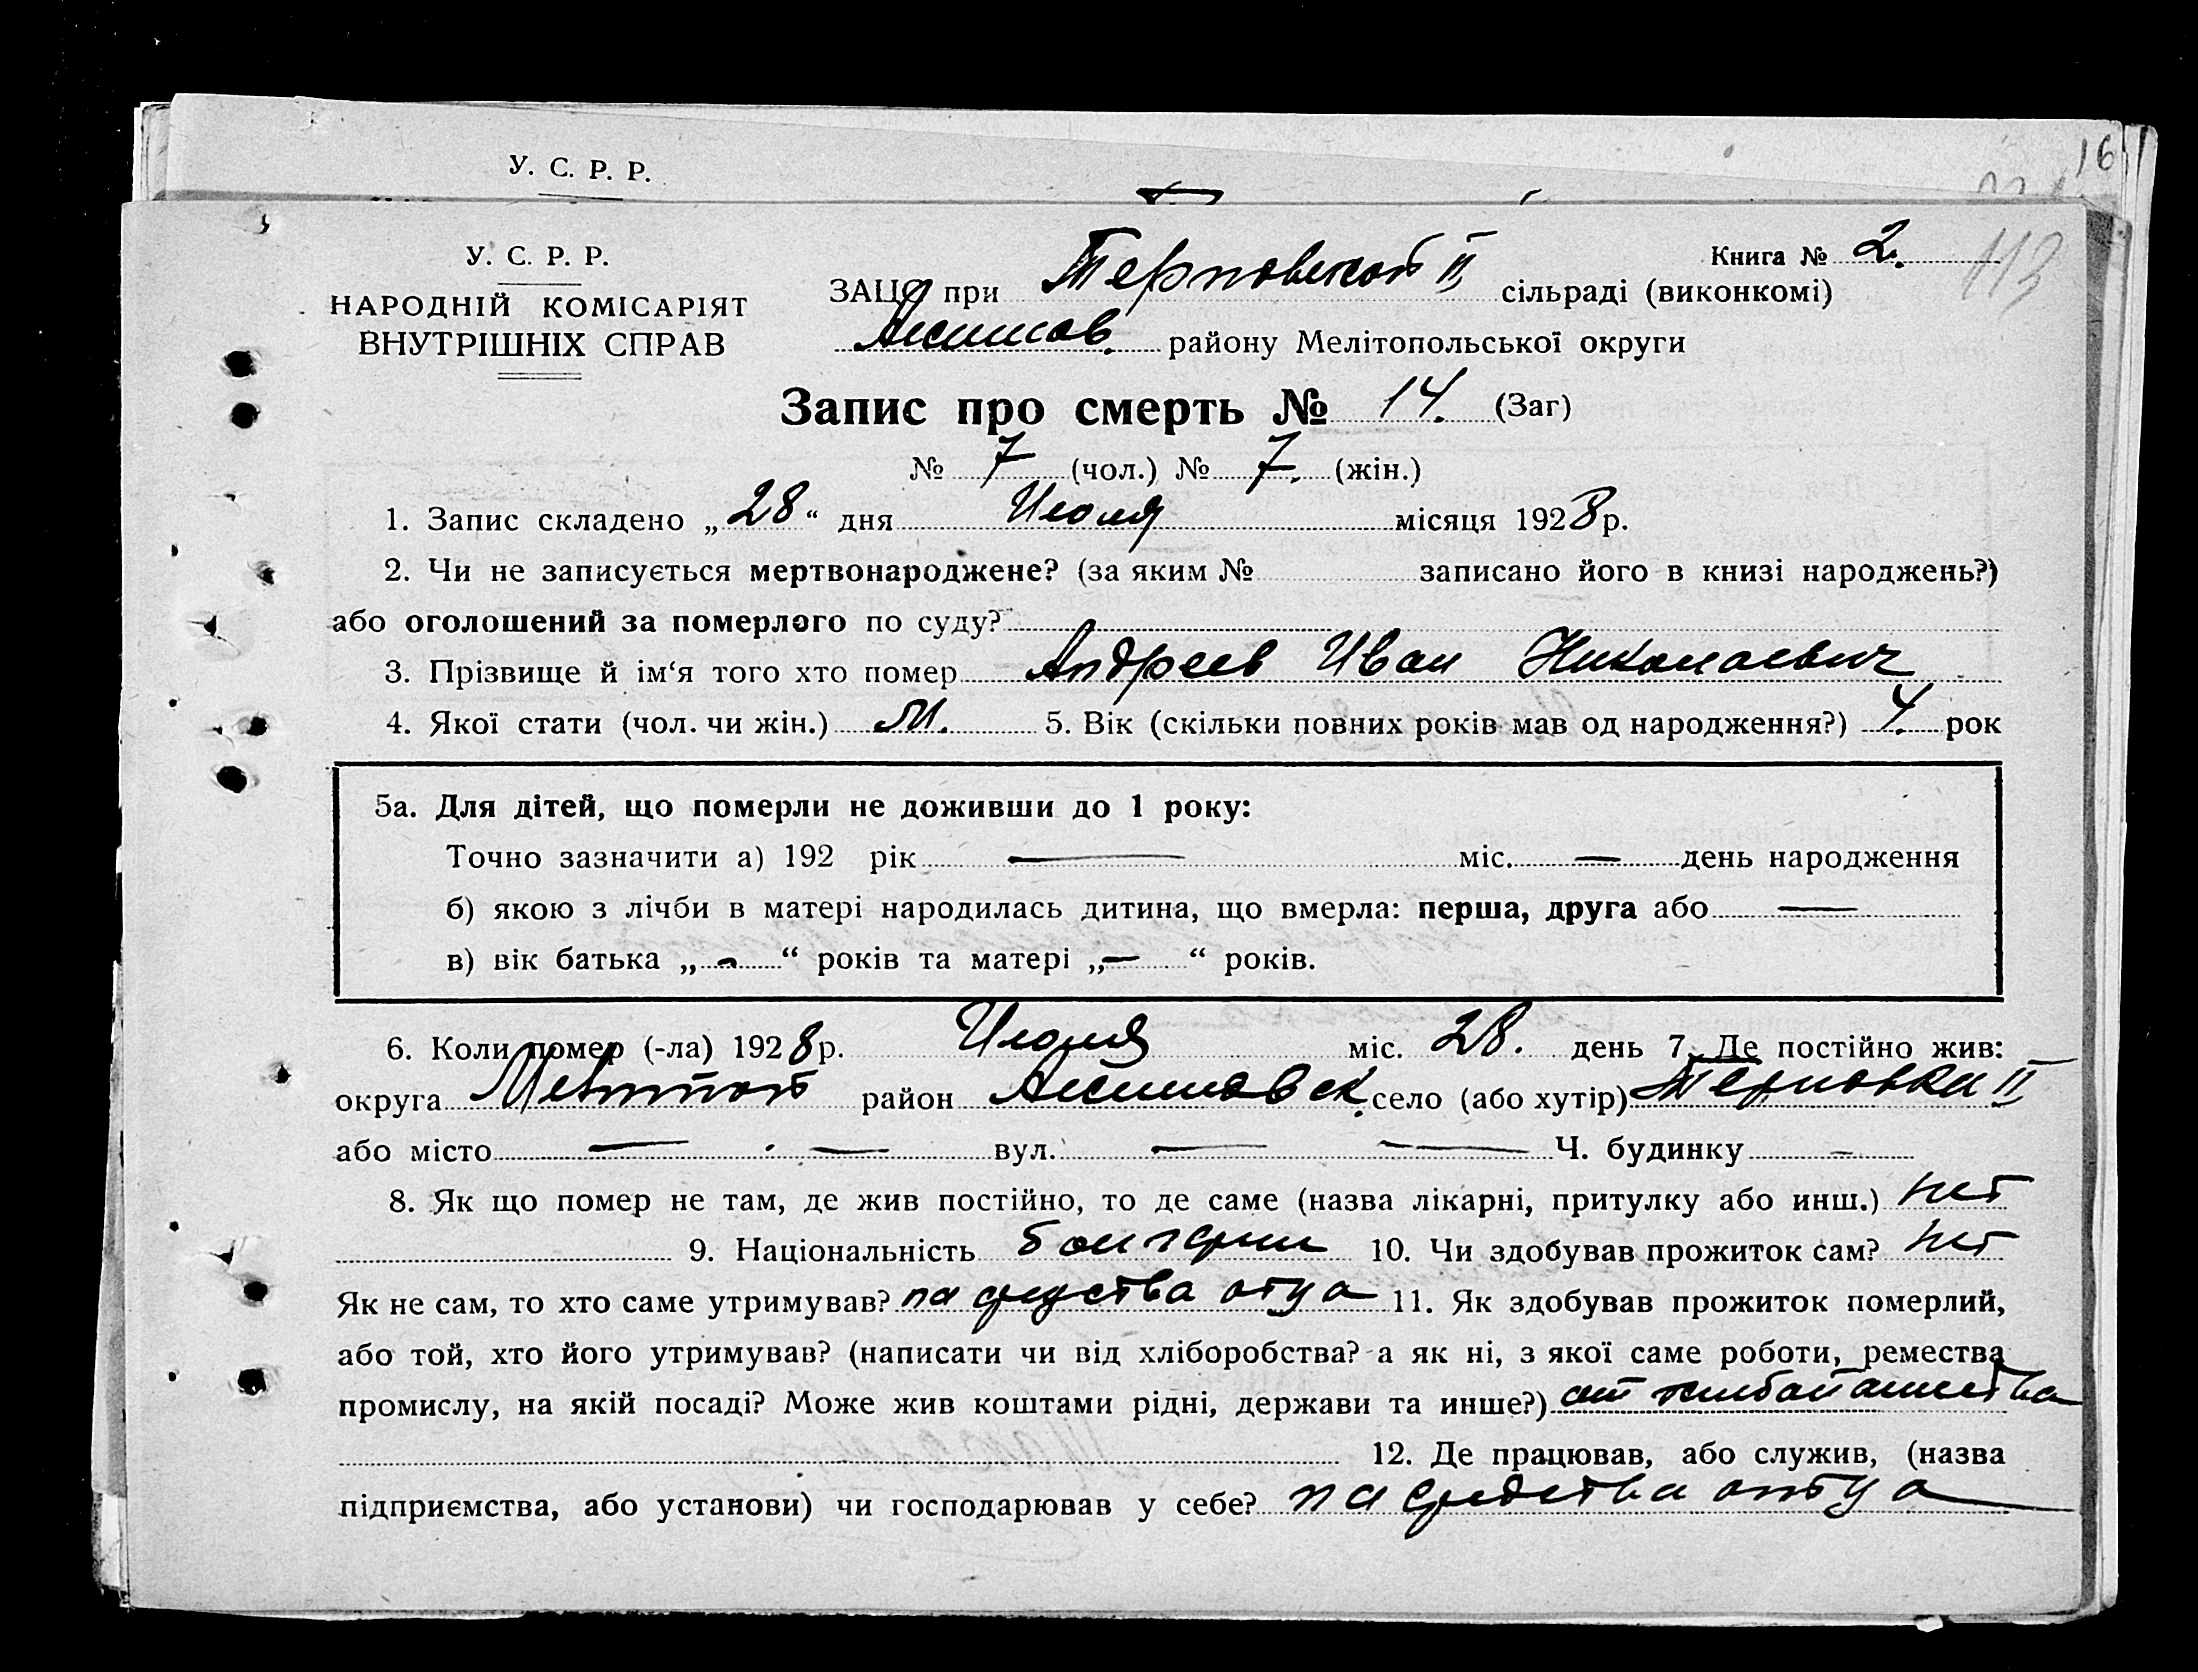 16
У. С. Р. Р.
У. С. Р. Р.
НАРОДНІЙ КОМІСАРІЯТ
ВНУТРІШНІХ СПРАВ
Книга № 2. 113
ЗАЦС при Терповской II сільраді (виконкомі)
Акимов. району Мелітопольської округи
Запис про смерть № 14. (Заг)
№ 7 (чол.) № 7. (жін.)
1. Запис складено „28“ дня Июля місяця 1928 р.
2. Чи не записується мертвонароджене? (за яким № записано його в книзі народжень?)
або оголошений за померлого по суду?
3. Прізвище й ім‘я того хто помер Андреев Иван Николаевич
4. Якої стати (чол. чи жін.) М. 5. Вік (скільки повних років мав од народження?) 4. рок
5а. Для дітей, що померли не доживши до 1 року:
Точно зазначити а) 192 рік — міс. — день народження
б) якою з лічби в матері народилась дитина, що вмерла: перша, друга або —
в) вік батька „-“ років та матері „—“ років.
6. Коли помер (-ла) 1928 р. Июля міс. 28. день 7. Де постійно жив:
округа район Акимовск. село (або хутір) Терповка II
або місто — — вул. — — Ч. будинку —
8. Як що помер не там, де жив постійно, то де саме (назва лікарні, притулку або инш.) нет
9. Національність болгарин 10. Чи здобував прожиток сам? нет
Як не сам, то хто саме утримував? на средства отца 11. Як здобував прожиток померлий,
або той, хто його утримував? (написати чи від хліборобства? а як ні, з якої саме роботи, ремества
промислу, на якій посаді? Може жив коштами рідні, держави та инше?) от
12. Де працював, або служив, (назва
підприємства, або установи) чи господарював у себе? на средства отца